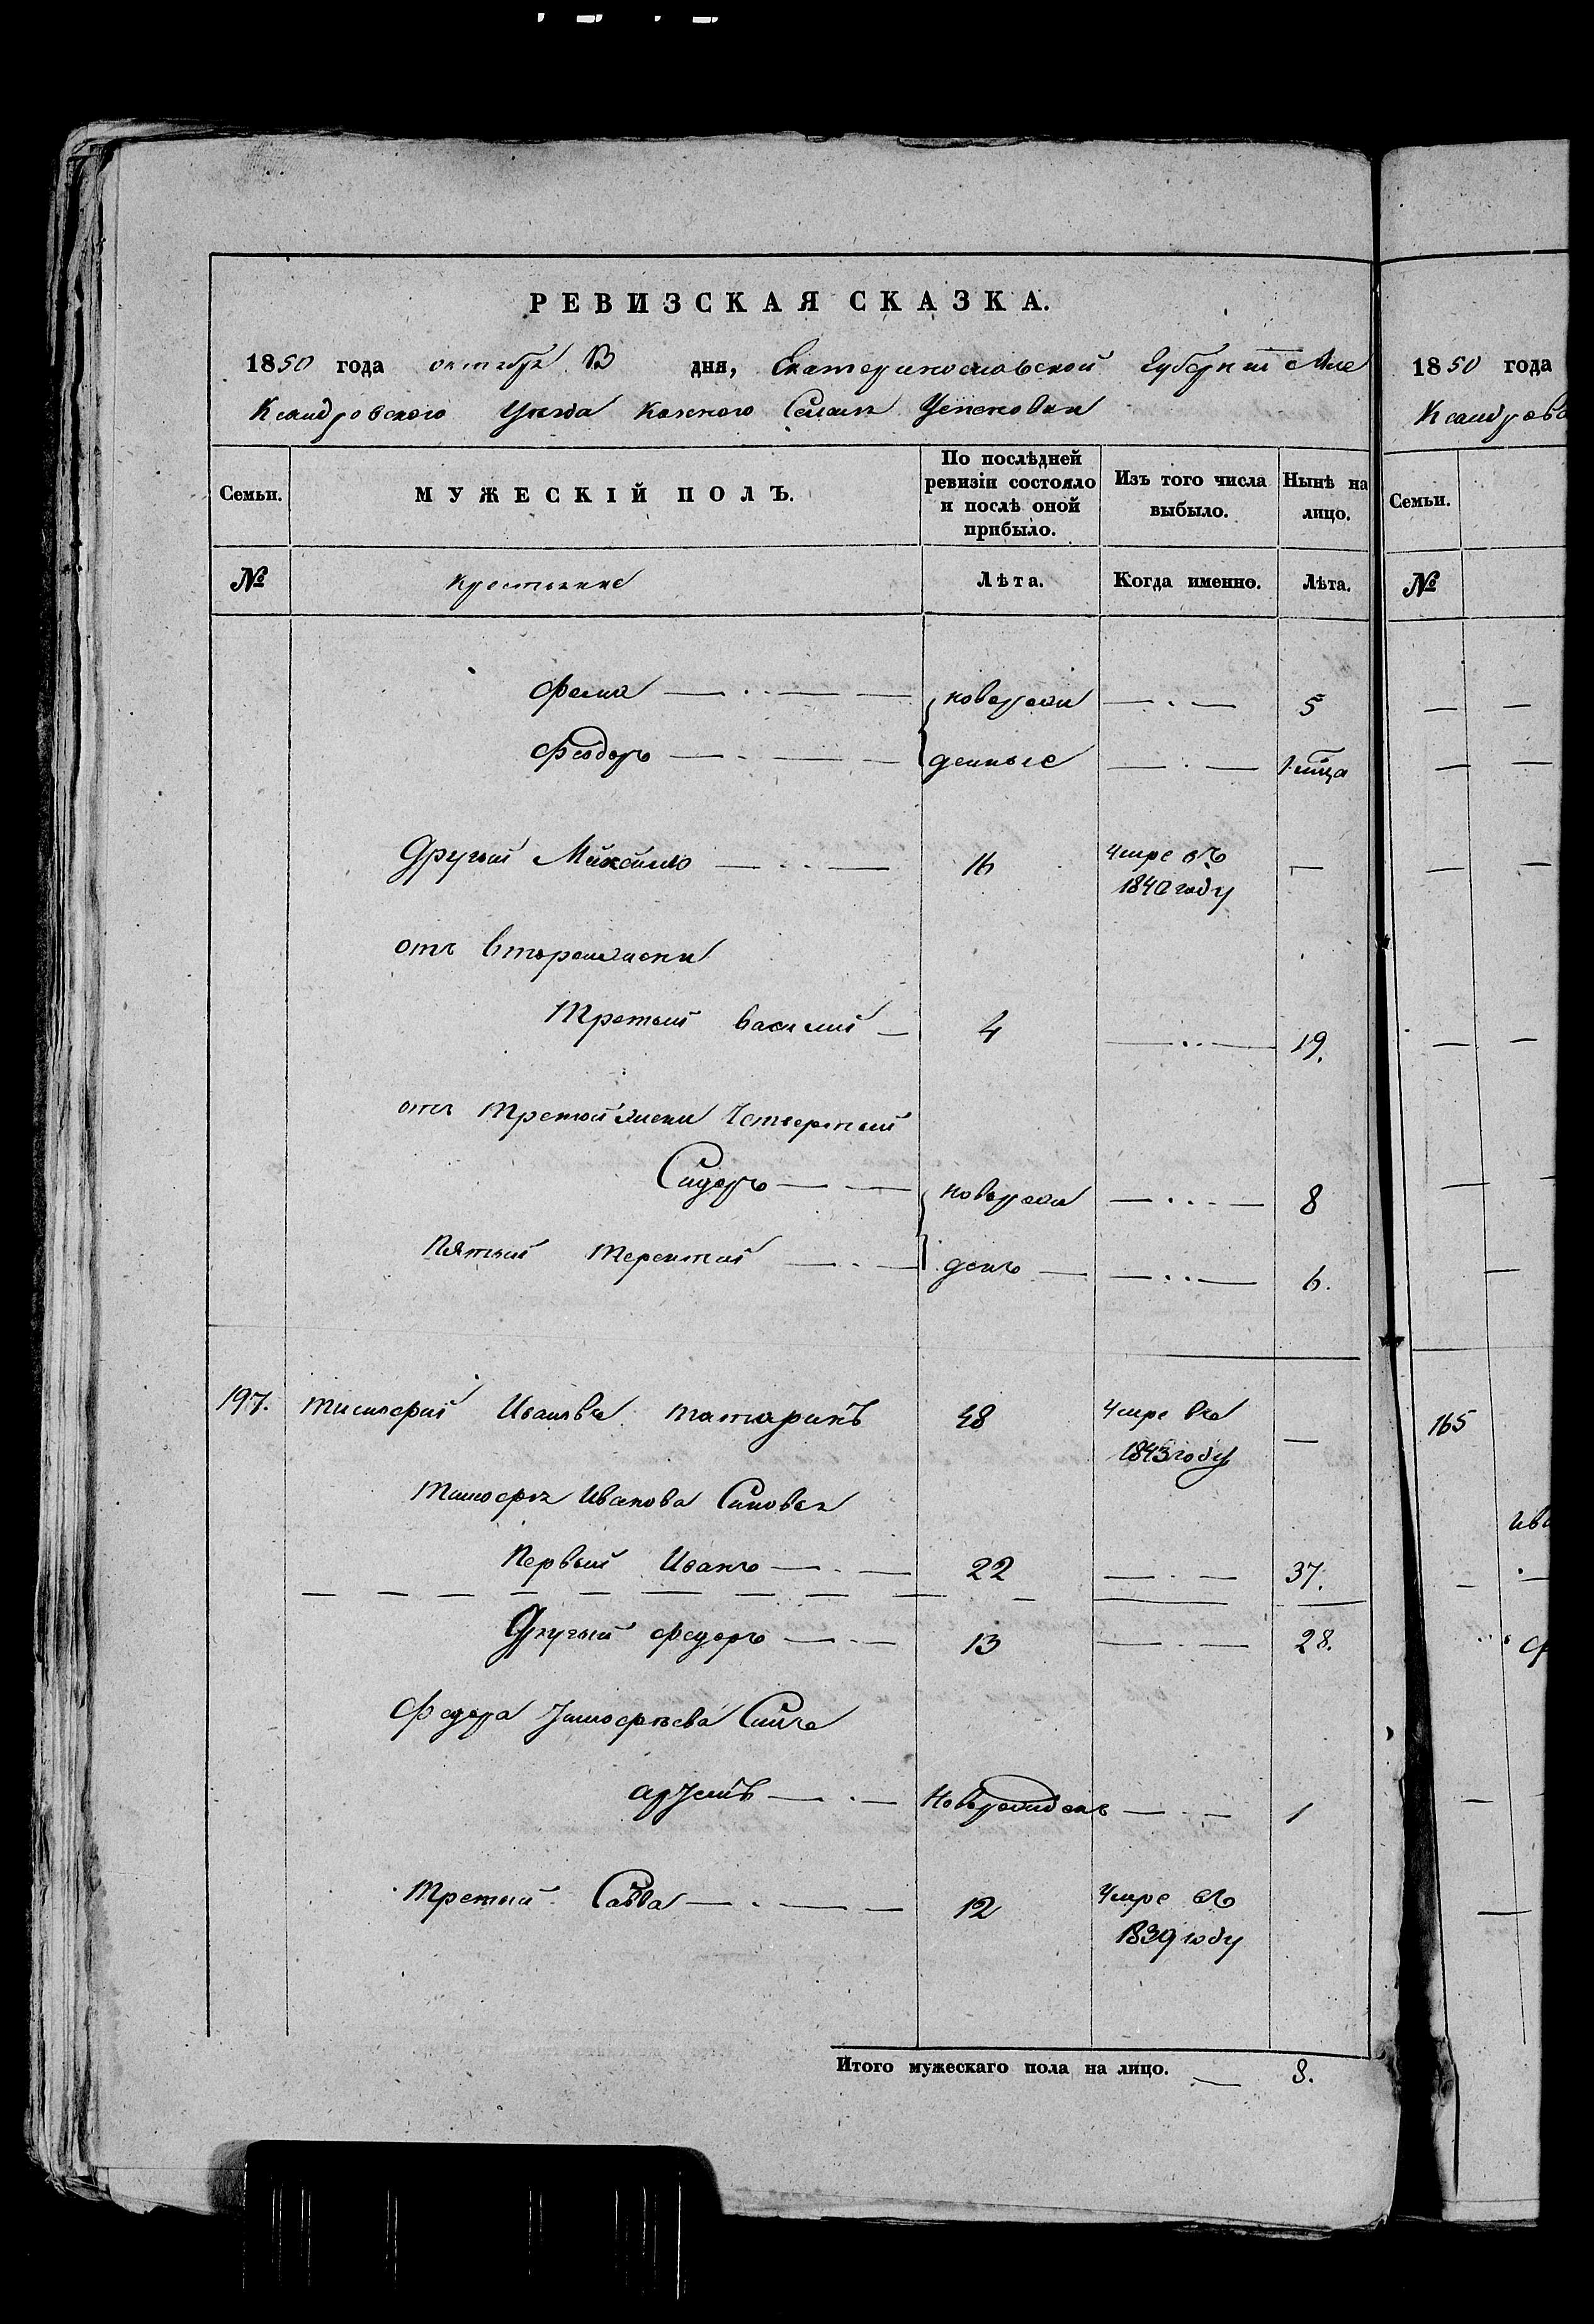 РЕВИЗСКАЯ СКАЗКА.
1850 года октября 13 дня, Екатеринославской Губернии Але
ксандровского Уезда казенного Селения Успеновки
Семьи. МУЖЕСКІЙ ПОЛЪ. По послѣдней ревизіи состояло и послѣ оной прибыло. Изъ того числа выбыло. Нынѣ на лицо.
№ крестьяне Лѣта. Когда именно. Лѣта.
Фома новорож 5
Феодоръ денные 1 м͞ца
Другий Максимъ 16 Умре въ 1840 году
отъ второй жени
Третий василий 4 19.
отъ третой жени Четвертий
Сидоръ новорож 8
Пятий терентий денъ 6.
197. тимофей Ивановъ татаринъ 48 Умре въ 1843 году
тимофея Иванова Синовья
Первый Иванъ 22 37.
Другий федоръ 13 28.
Федора Тимофеева Синъ
артемъ Новорожденъ 1
третий Савва 12 Умре въ 1839 году
Итого мужескаго пола на лицо. 8.
1850 года
ксандров
Семьи.
№
165
ива